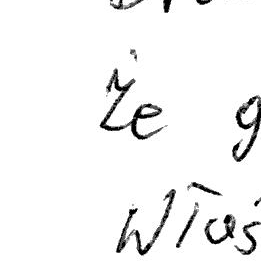 że g
właś